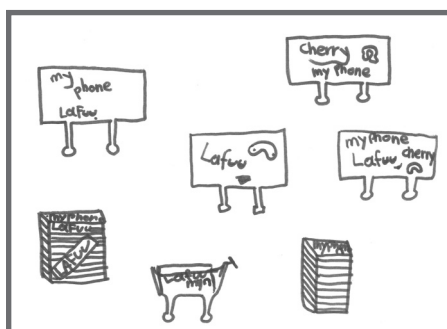 my
phone
Lafuu
cherry
my phone
Lafuu
my phone
cherry
Lafuu
my phone
Lafuu
Lafuu
Lafuu
mini
my phone